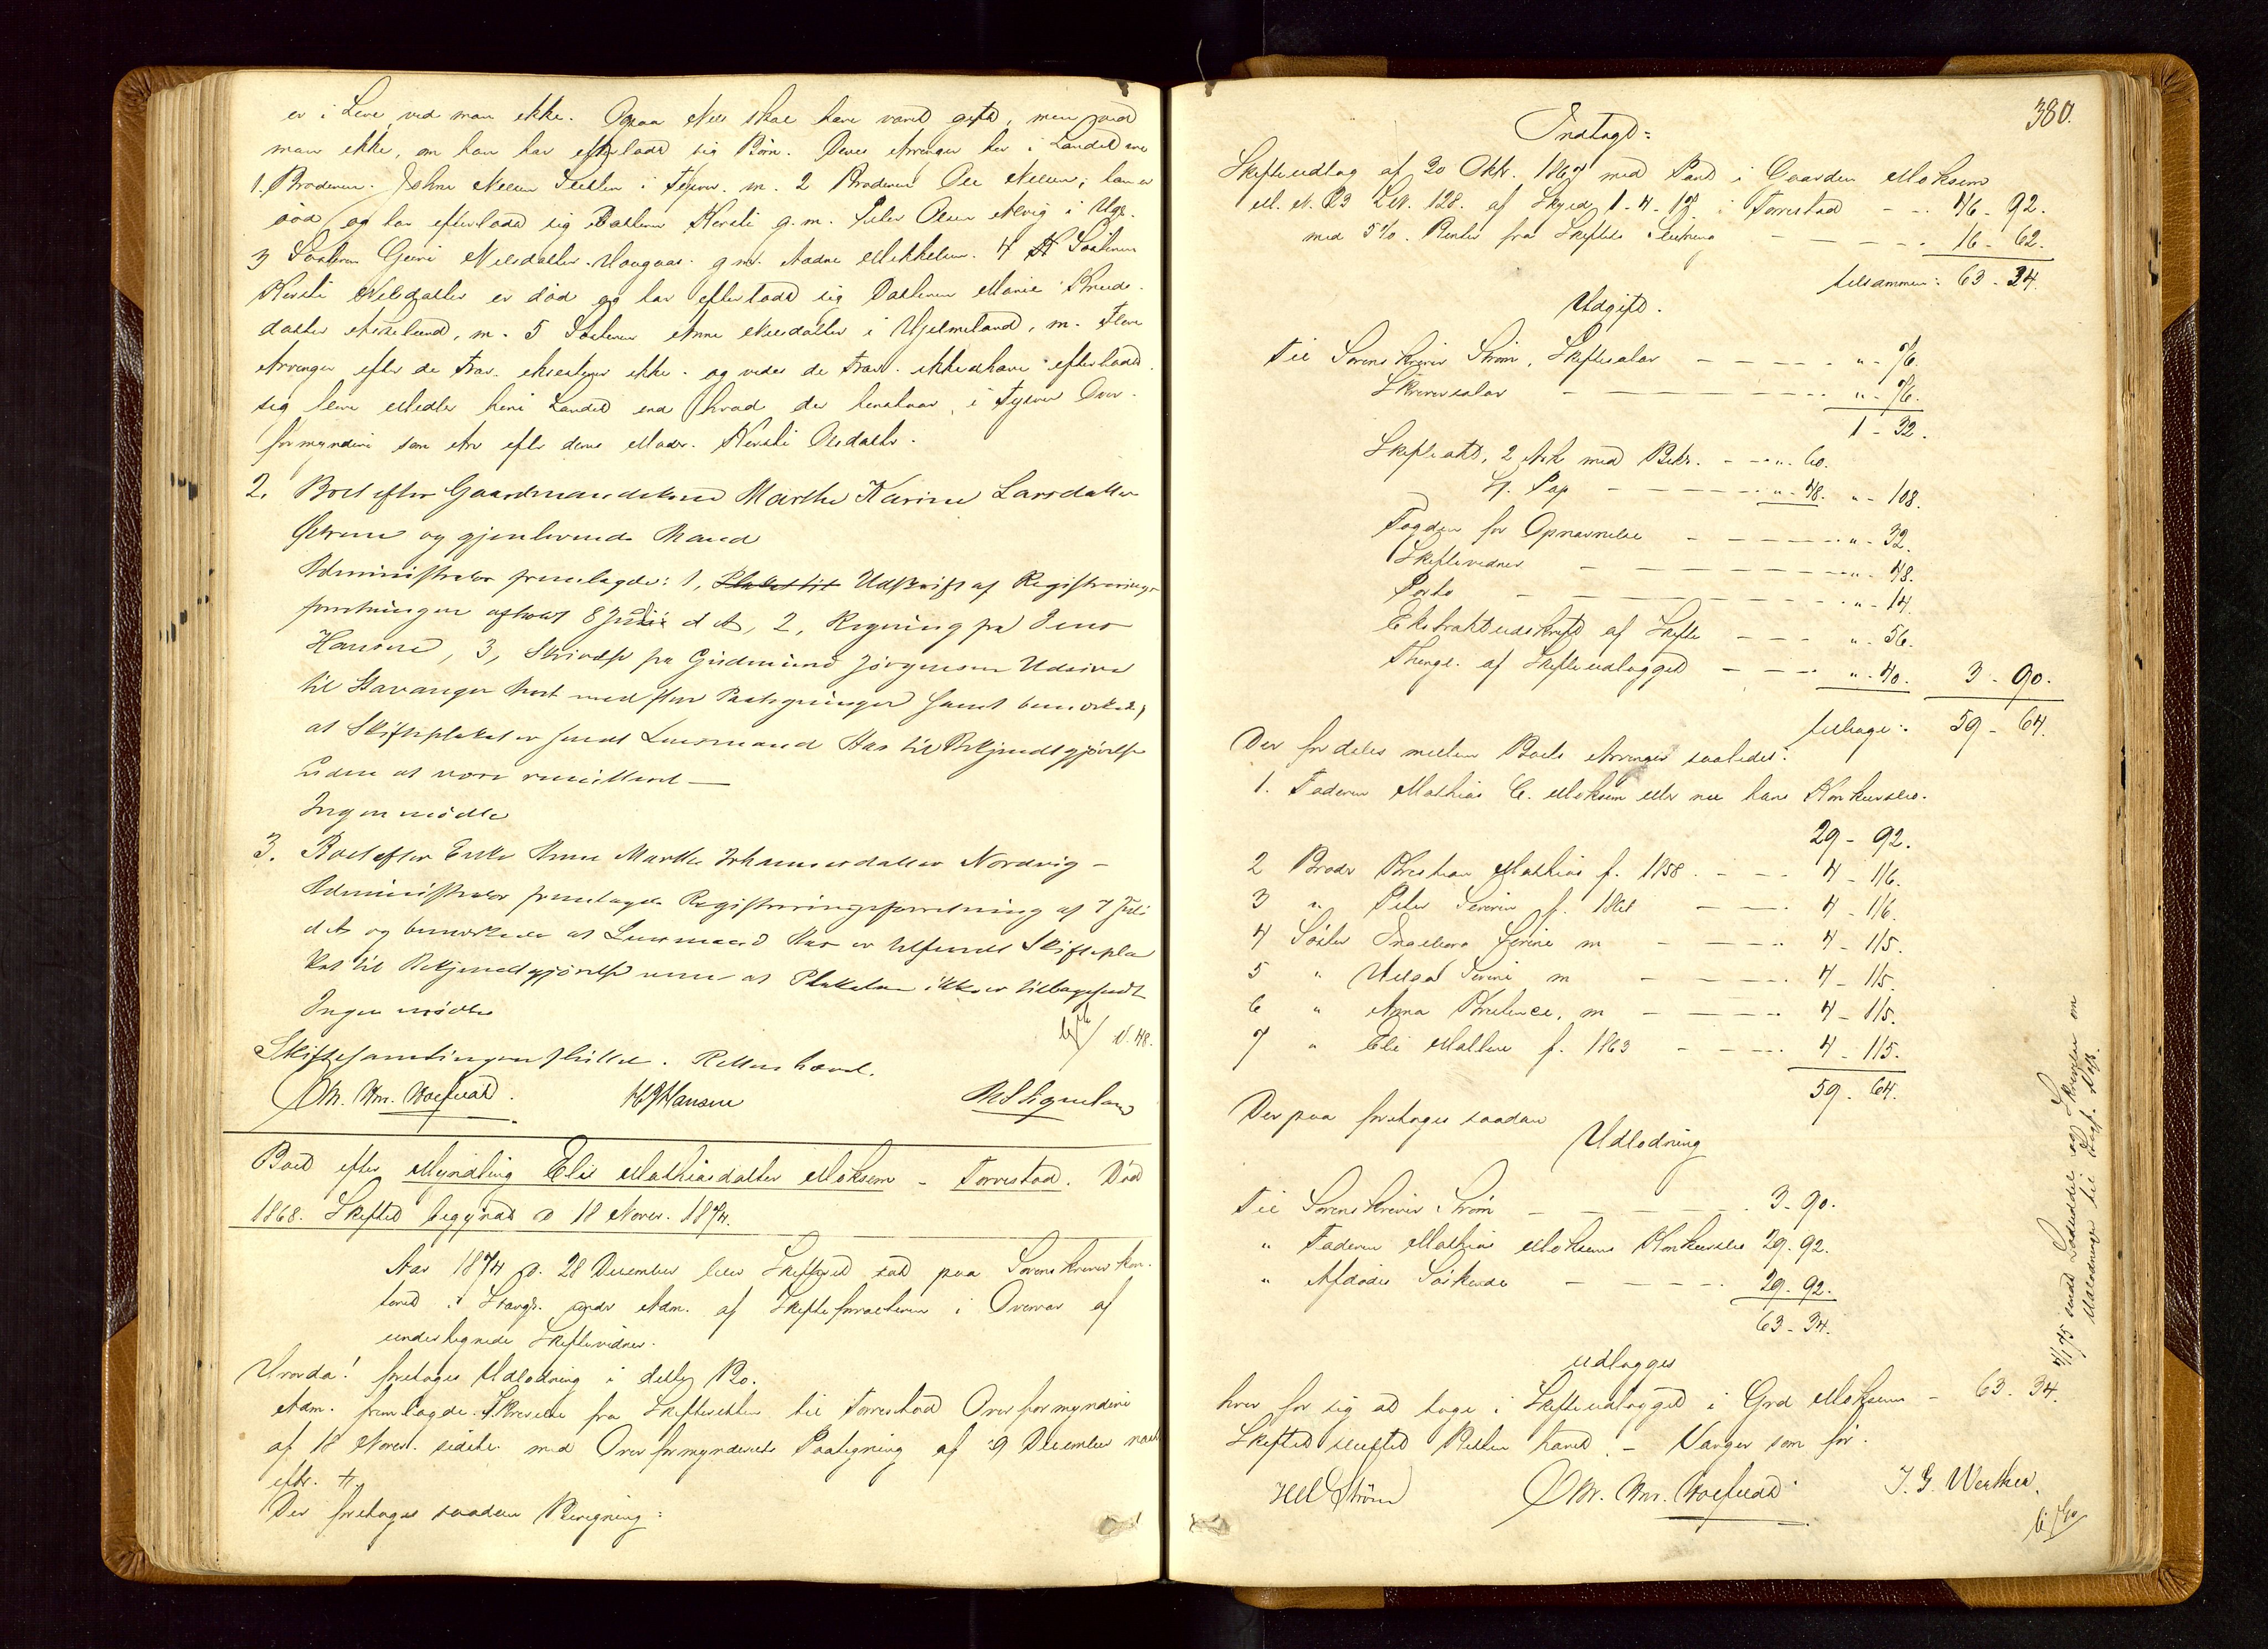 er i Live, ved man ikke. Ogsaa Nils skal have været gift, men ved
man ikke, om han har efterladt sig Børn. Deres Arvinger her i Landet ere
1. Broderen Johne Nilsen i Tysvær. m. 2 Broderen Ole Nilsen; han er
død og har efterladt sig Datteren Kersti g. m. Peder Olsen
3 Søsteren Guri Nilsdatter g. m. Aadne Mikkelsen. 4 Søsteren
Kersti Nilsdatter er død og har efterladt sig Datteren Marie Knuds-
datter, m. 5 Søsteren Anna Nilsdatter i Hjelmeland, m. Flere
Arvinger efter de Frav. eksisterer ikke og vides de Frav. ikke at have efterladt
sig flere Midler her i Landet end hvad der henstaar i Tysvær Over-
formynderi som Arv efter deres Moder Kersti Olsdatter.
2. Boet efter Gaardmandskone Marthe Karine Larsdatter
og gjenlevende Mand
Administrator fremlagde: 1, Udskrift af Registrerings-
forretningen afholdt 8 Juli d A, 2, Regning fra Jens
Hansen, 3, Skrivelse fra Gudmund Jørgensen
til Stavanger med Paategninger samt bemærkede,
at Skifteplakat er sendt Lensmand Aas til Bekjendtgjørelse
uden at være remitteret —
Ingen mødte
3. Boet efter Enke Anne Marthe Johannesdatter Nordvig -
Administrator fremlagde Registreringsforretning af 7 Juli
d A og bemærkede at Lensmand Aas er tilsendt Skiftepla
kat til Bekjendtgjørelse men at Plakaten ikke er tilbagesendt
Ingen mødte
Skiftesamlingen sluttet. Retten hævet.
H J Hansen
Boet efter Myndling Elie Mathiasdatter Moksem - Torvestad. Død
1868. Skiftet begyndt d 18 Novbr. 1874.
Aar 1874 d. 28 December blev Skifteret sat paa Sorenskriverkon-
toret i Stavgr. under Adm. af Skifteforvalteren i Overvær af
undertegnede Skiftevidner.
Hvorda! foretoges Udlodning i dette Bo.
Adm. fremlagde Skrivelse fra Skifteretten til Torvestad Overformynderi
af 18 Novbr. sidstl. med Overformynderiets Paategning af 9 December næst
eftr.
Der foretoges saadan Beregning:
380.
Indtægt:
Skifteudlæg af 20 Oktr. 1867 med Pant i Gaarden Moksem
M. N. 23 L.N. 128. af Skyld 1-4-17 i Torvestad - - 46 - 92.
med 5%. Renter fra Skiftets Slutning - - - - 16 - 62.
tilsammen: 63 - 34.
Udgift.
Til Sorenskriver Strøm, Skiftesalær - - - - " - 76.
Skriversalær - - - - " - 76.
1 - 32.
Skifteakt, 2 Ark med Bekr. - - " 60.
St. Pap - - - - " - 48. " - 108.
Fogden for Opnævnelse - - - - " - 32.
Skiftevidner - - - - " - 48.
Porto - - - - " - 14.
Ekstraktudskrift af Skiftet - - - " - 56.
Thingl. af Skifteudlægget - - - " - 40. 3 - 90.
tilbage: 59 - 64.
Der fordeles mellem Boets Arvinger saaledes:
1. Faderen Mathias C. Moksem eller nu hans Konkursbo.
29 - 92.
2 Broder Kristian Mathias f. 1858. - - 4 - 116.
3 " Peter Severin f. - - 4 - 116.
4 Søster Ingeborg Serine m - - - 4 - 115.
5 " Helga Serine m - - - 4 - 115.
6 " Anna, m - - - 4 - 115.
7 " Eli Malene f. 1863 - - - 4 - 115.
59 - 64.
Derpaa foretoges saadan
Udlodning
Til Sorenskriver Strøm - - - - 3 - 90.
" Faderen Mathias Moksems Konkursbo 29 - 92.
" Afdødes Søskende - - - - 29 - 92.
63 - 34.
udlægges
hver for sig at tage i Skifteudlægget i Grd Moksem - 63 - 34.
Skiftet sluttet Retten hævet. - Varger som før.
Strøm
sendt Lodseddel og Skrivelse om
Udlodningen til